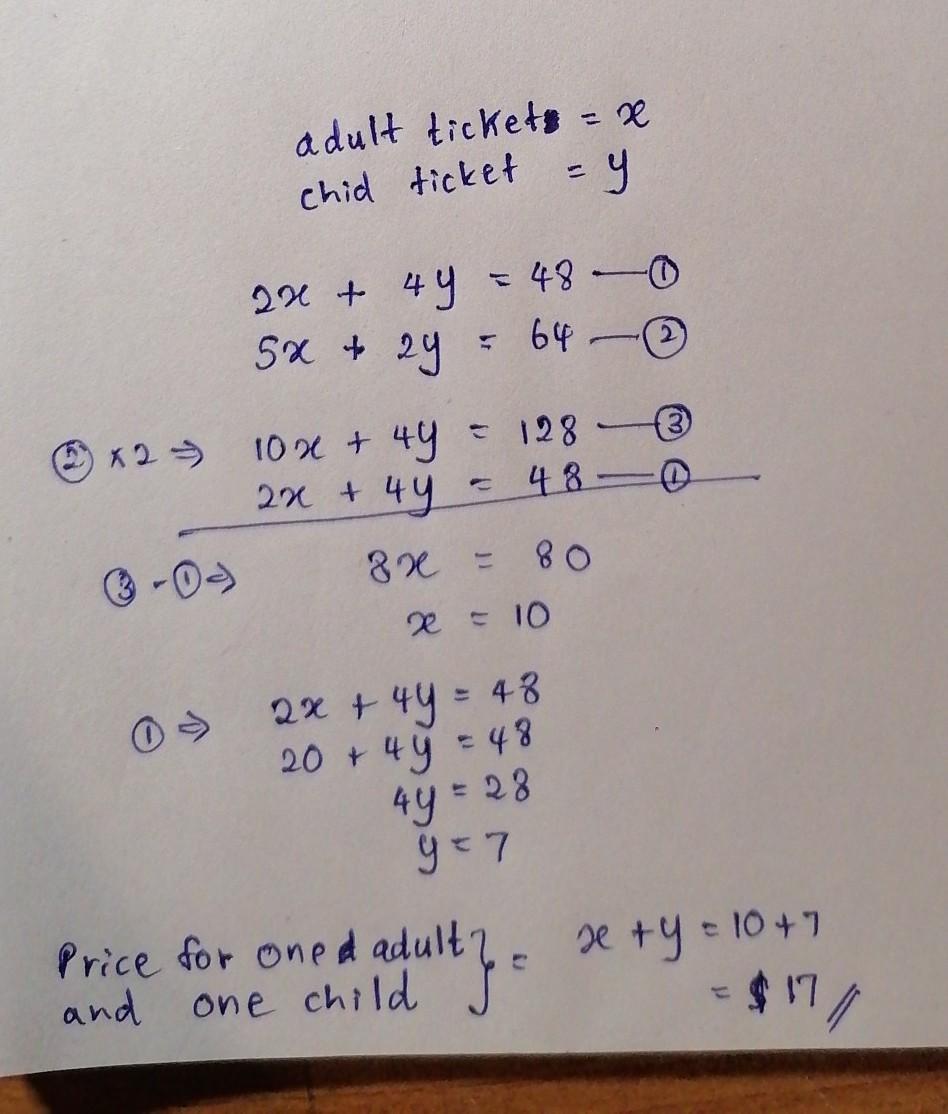 adult ticket = x
chid ticket = y
2x + 4y = 48 — ①
5x + 2y = 64 — ②
② × 2 ⇒ 10x + 4y = 128 — ③
2x + 4y = 48 — ①
③ - ① ⇒ 8x = 80
x = 10
① ⇒ 2x + 4y = 48
20 + 4y = 48
4y = 28
y = 7
Price for one adult
and one child } = x + y = 10 + 7
= $ 17 //